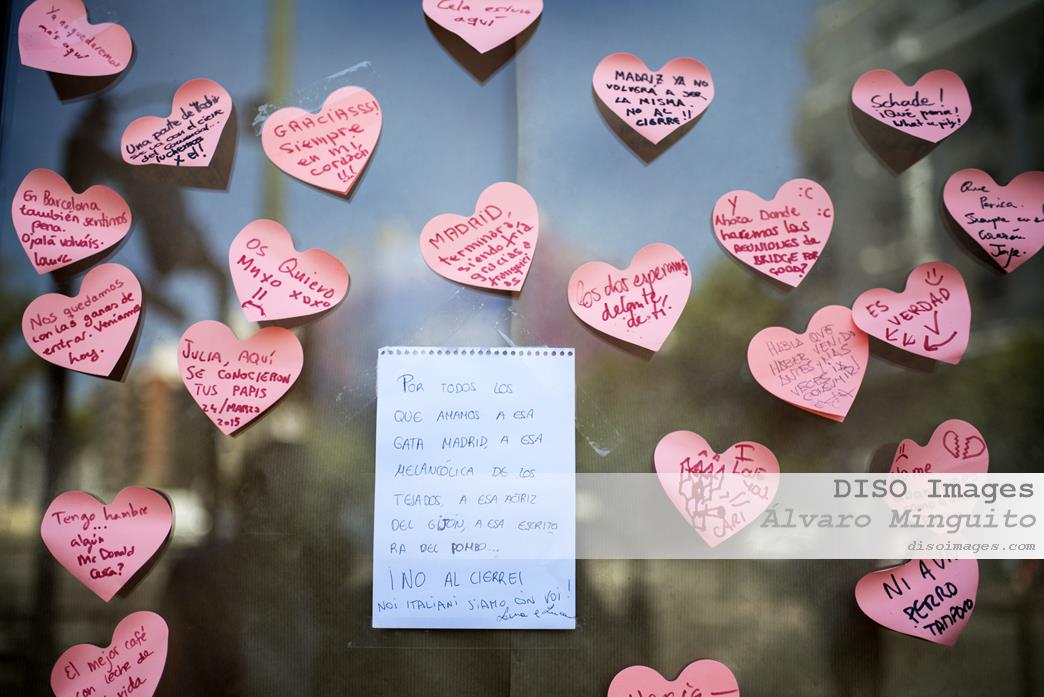 Ya no quedaremos
más aquí
Cela estuvo
aquí
Una parte de Madrid
se va con el cierre
del comercial...
luchemos
x el!
GRACIASSS!
Siempre
en mi
corazón
!!!
MADRIZ YA NO
VOLVERÁ A SER
LA MISMA.
NO AL
CIERRE!!
Schade!
¡Qué pena!
What a pity!
En Barcelona
también sentimos
pena.
Ojalá volváis.
Laura
OS QUIERO
MUXO XOXO
MADRID,
terminará
siendo fría
Gracias a
Y :C
Ahora Donde :C
haremos las
REUNIONES DE
BRIDGE FOR
GOOD?
Que
Siempre en el
corazón
Jorge
Nos quedamos
con las ganas de
entrar. Veníamos
hoy.
JULIA, AQUÍ
SE CONOCIERON
TUS PAPIS
24/MARZO
2015
Los dos esperamos
delante
de ti!
HABIA QUE
HABER VENIDO
ANTES Y MAS
VECES
ES
VERDAD
POR TODOS LOS
QUE AMAMOS A ESA
GATA MADRID, A ESA
MELANCÓLICA DE LOS
TEJADOS, A ESA ACTRIZ
DEL GIJÓN, A ESA ESCRITO
RA DEL POMBO...
¡NO AL CIERRE!
NOI ITALIANI SIAMO CON VOI!
I
LOVE
YOU
CARI
Tengo hambre
...
algún
Mc Donald
cerca?
NI A UN
PERRO
TAMPOCO
El mejor café
con leche de
vida
DISO Images
Álvaro Minguito
disoimages.com